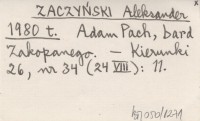 ZACZYŃSKI Aleksander
1980 t. Adam Pach, bard
Zakopanego. – Kierunki
26, nr 34 (24 VIII): 11.